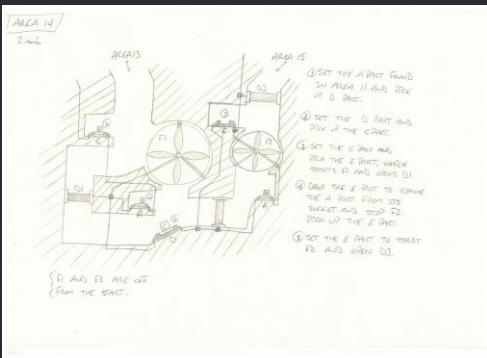 AREA 14
2 min
AREA 13
AREA 15
① SET THE A PART FOUND
IN AREA 11 AND PICK
UP D PART.
② SET THE D PART AND
PICK UP THE C PART.
③ SET THE C PART AND
PICK THE E PART, WHICH
STARTS F1 AND OPENS D1.
④ DROP THE E PART TO REMOVE
THE A PART FROM ITS
SOCKET AND STOP F2.
PICK UP THE E PART.
⑤ SET THE E PART TO START
F2 AND OPEN D3.
D3
F1
F2
D1
F1 AND F2 ARE OFF
FROM THE START.